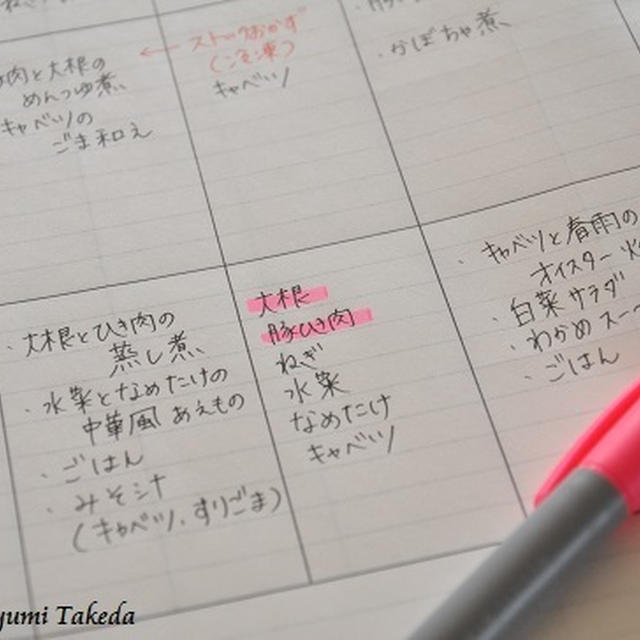 肉と大根の
めんつゆ煮
キャベツの
ごま和え
← ストックおかず
(冷凍)
キャベツ
・かぼちゃ煮
・大根とひき肉の
蒸し煮
・水菜となめたけの
中華風あえもの
・ごはん
・みそ汁
(キャベツ、すりごま)
大根
豚ひき肉
ねぎ
水菜
なめたけ
キャベツ
・キャベツと春雨の
オイスター
・白菜サラダ
・わかめスー
・ごはん
yumi Takeda